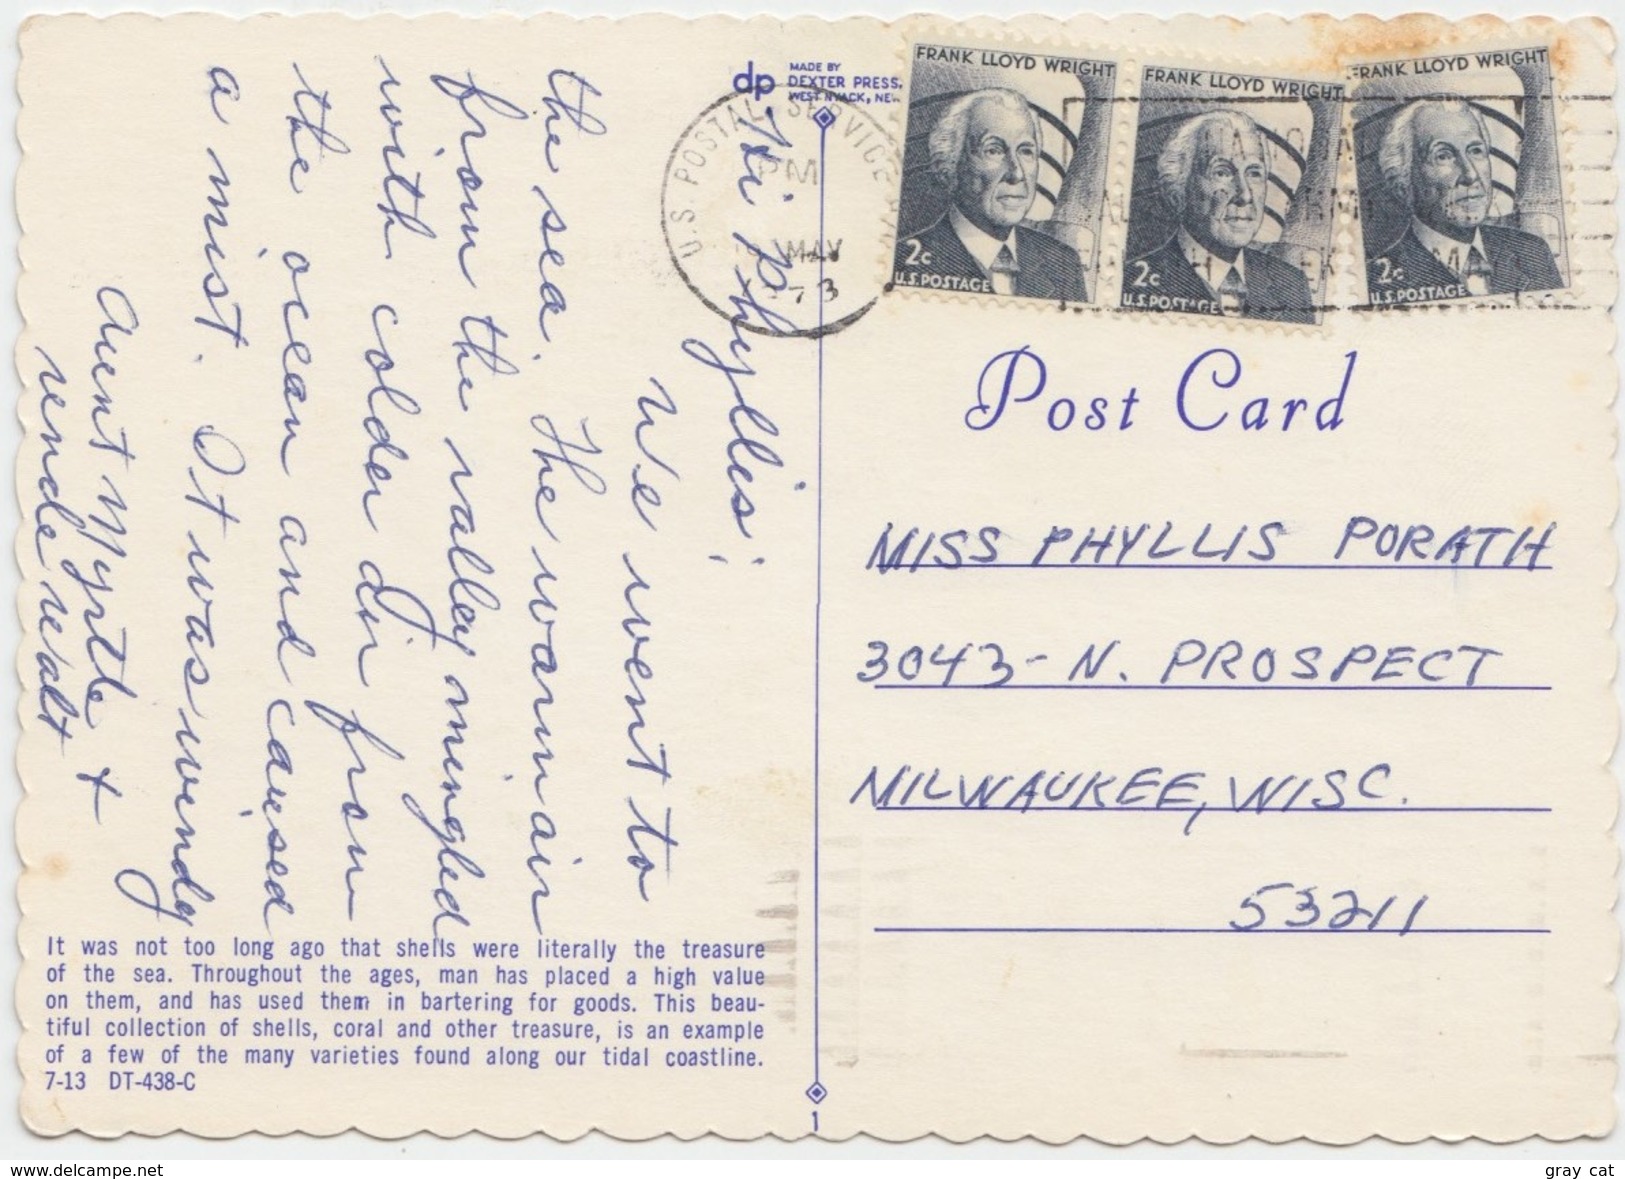 dp MADE BY
DEXTER PRESS,
WEST NYACK, NEW
Hi Phyllis,
We went to
the sea. The warm air
from the valley mingled
with colder air from
the ocean and caused
a mist. It was windy
Aunt Myrtle +
Uncle Walt
It was not too long ago that shells were literally the treasure
of the sea. Throughout the ages, man has placed a high value
on them, and has used them in bartering for goods. This beau-
tiful collection of shells, coral and other treasure, is an example
of a few of the many varieties found along our tidal coastline.
7-13 DT-438-C
1
U.S. POSTAL SERVICE
PM
MAY
73
FRANK LLOYD WRIGHT
2c
U.S. POSTAGE
FRANK LLOYD WRIGHT
2c
U.S. POSTAGE
FRANK LLOYD WRIGHT
2c
U.S. POSTAGE
Post Card
MISS PHYLLIS PORATH
3043-N. PROSPECT
MILWAUKEE, WISC.
53211
www.delcampe.net
gray cat